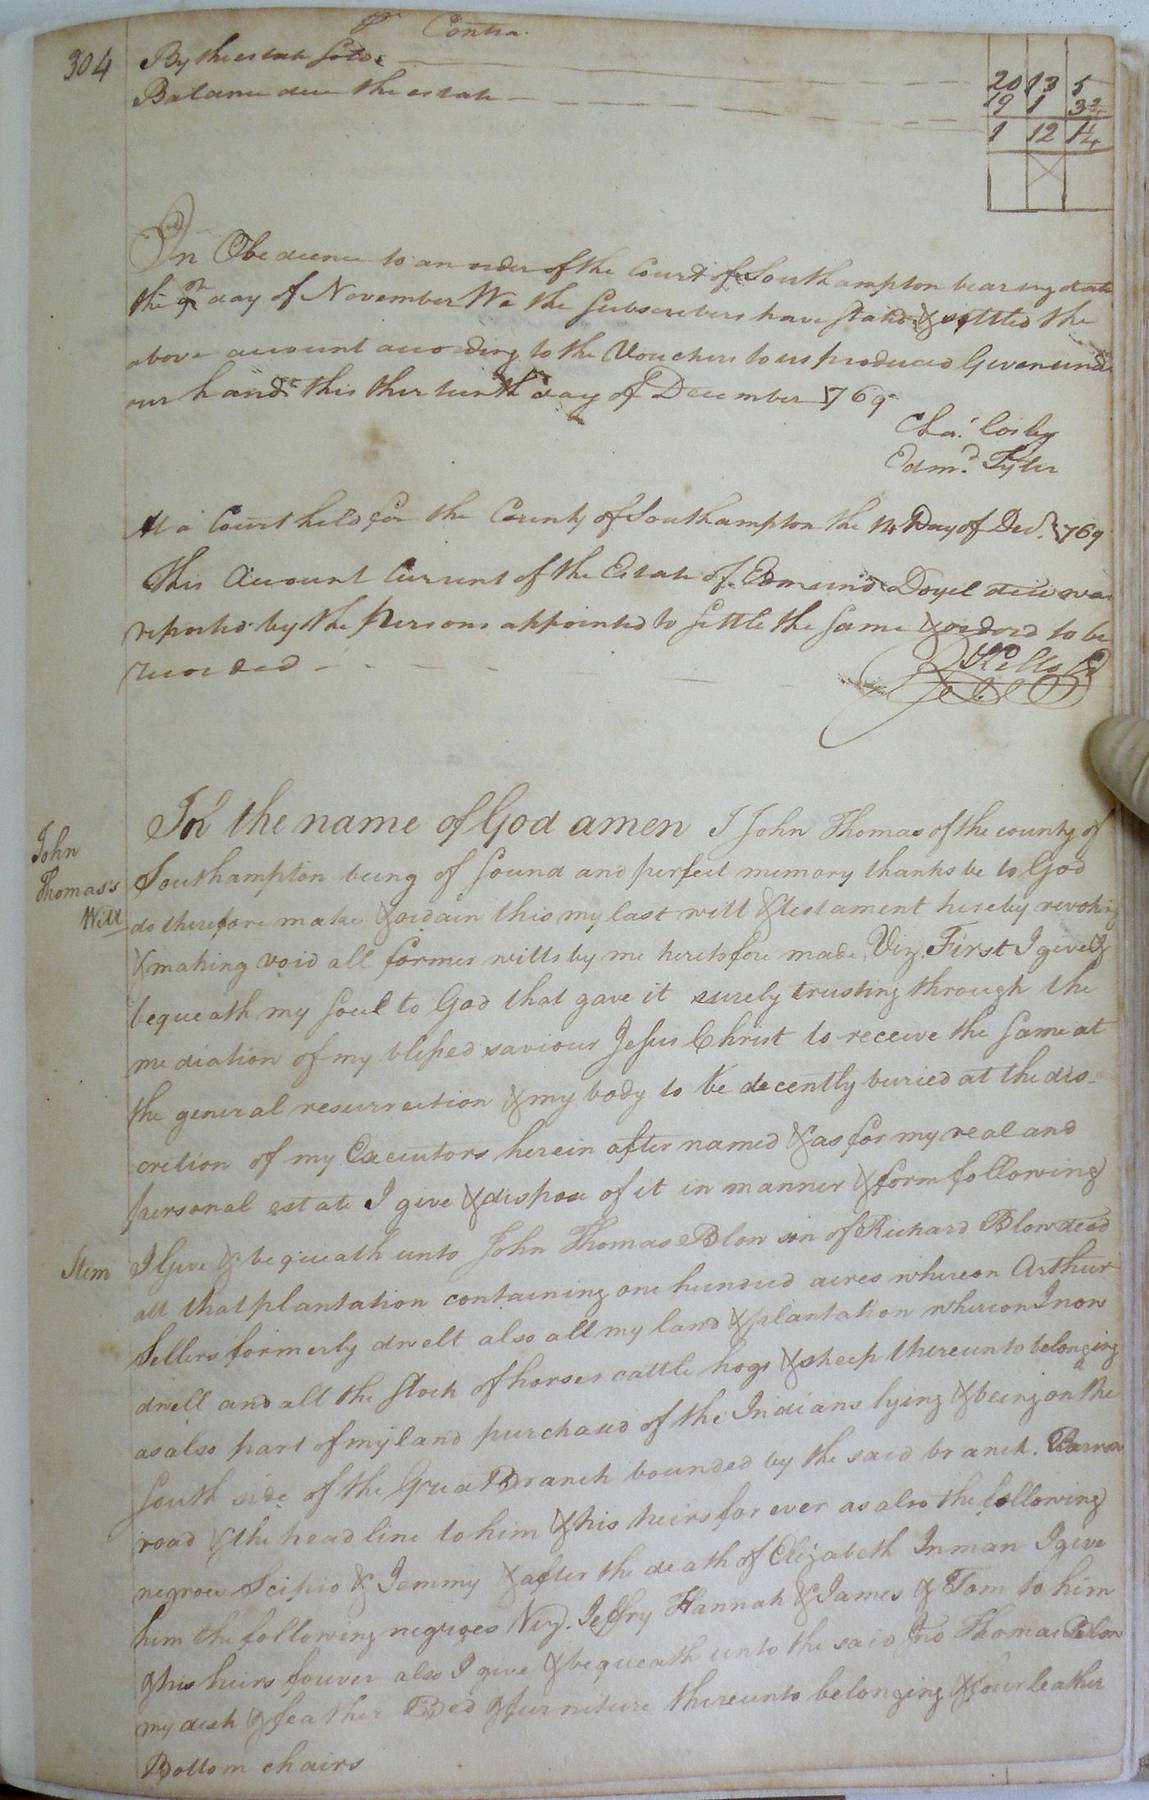 304
Contra.
By the estate sold
20 13 5
Balance due the estate
19 1 3¾
1 12 1¼
In Obedience to an order of the Court of Southampton bearing date
the 9th day of November We the Subscribers have stated & settled the
above account according to the Vouchers to us produced Given under
our hands this thirteenth day of December 1769
Cha.s Cosby
Edm.d Tyler
At a Court held for the County of Southampton the 14 Day of Dec.r 1769
This Account Current of the Estate of Edmund Doyel dec'd was
reported by the Persons appointed to settle the same & ordered to be
recorded
John
Thomas's
Will
In the name of God amen I John Thomas of the county of
Southampton being of sound and perfect memory thanks be to God
do therefore make & ordain this my last will & testament hereby revoking
& making void all former wills by me heretofore made, Viz. First I give &
bequeath my soul to God that gave it surely trusting through the
mediation of my blessed saviour Jesus Christ to receive the same at
the general resurrection & my body to be decently buried at the dis-
cretion of my Executors herein after named & as for my real and
personal estate I give & dispose of it in manner & form following
Item
I Give & bequeath unto John Thomas Blow son of Richard Blow dec'd
all that plantation containing one hundred acres whereon Arthur
Sellers formerly dwelt also all my land & plantation whereon I now
dwell and all the stock of horses cattle hogs & sheep thereunto belonging
as also part of my land purchased of the Indians lying & being on the
South side of the Great Branch bounded by the said branch. Barrow
road & the head line to him & his heirs for ever as also the following
negroes Scipio & Jemmy & after the death of Elizabeth Inman I give
him the following negroes Viz. Jeffry Hannah & James & Tom to him
& his heirs forever also I give & bequeath unto the said Jno Thomas Blow
my desk & feather Bed & furniture thereunto belonging & four leather
Bottom chairs